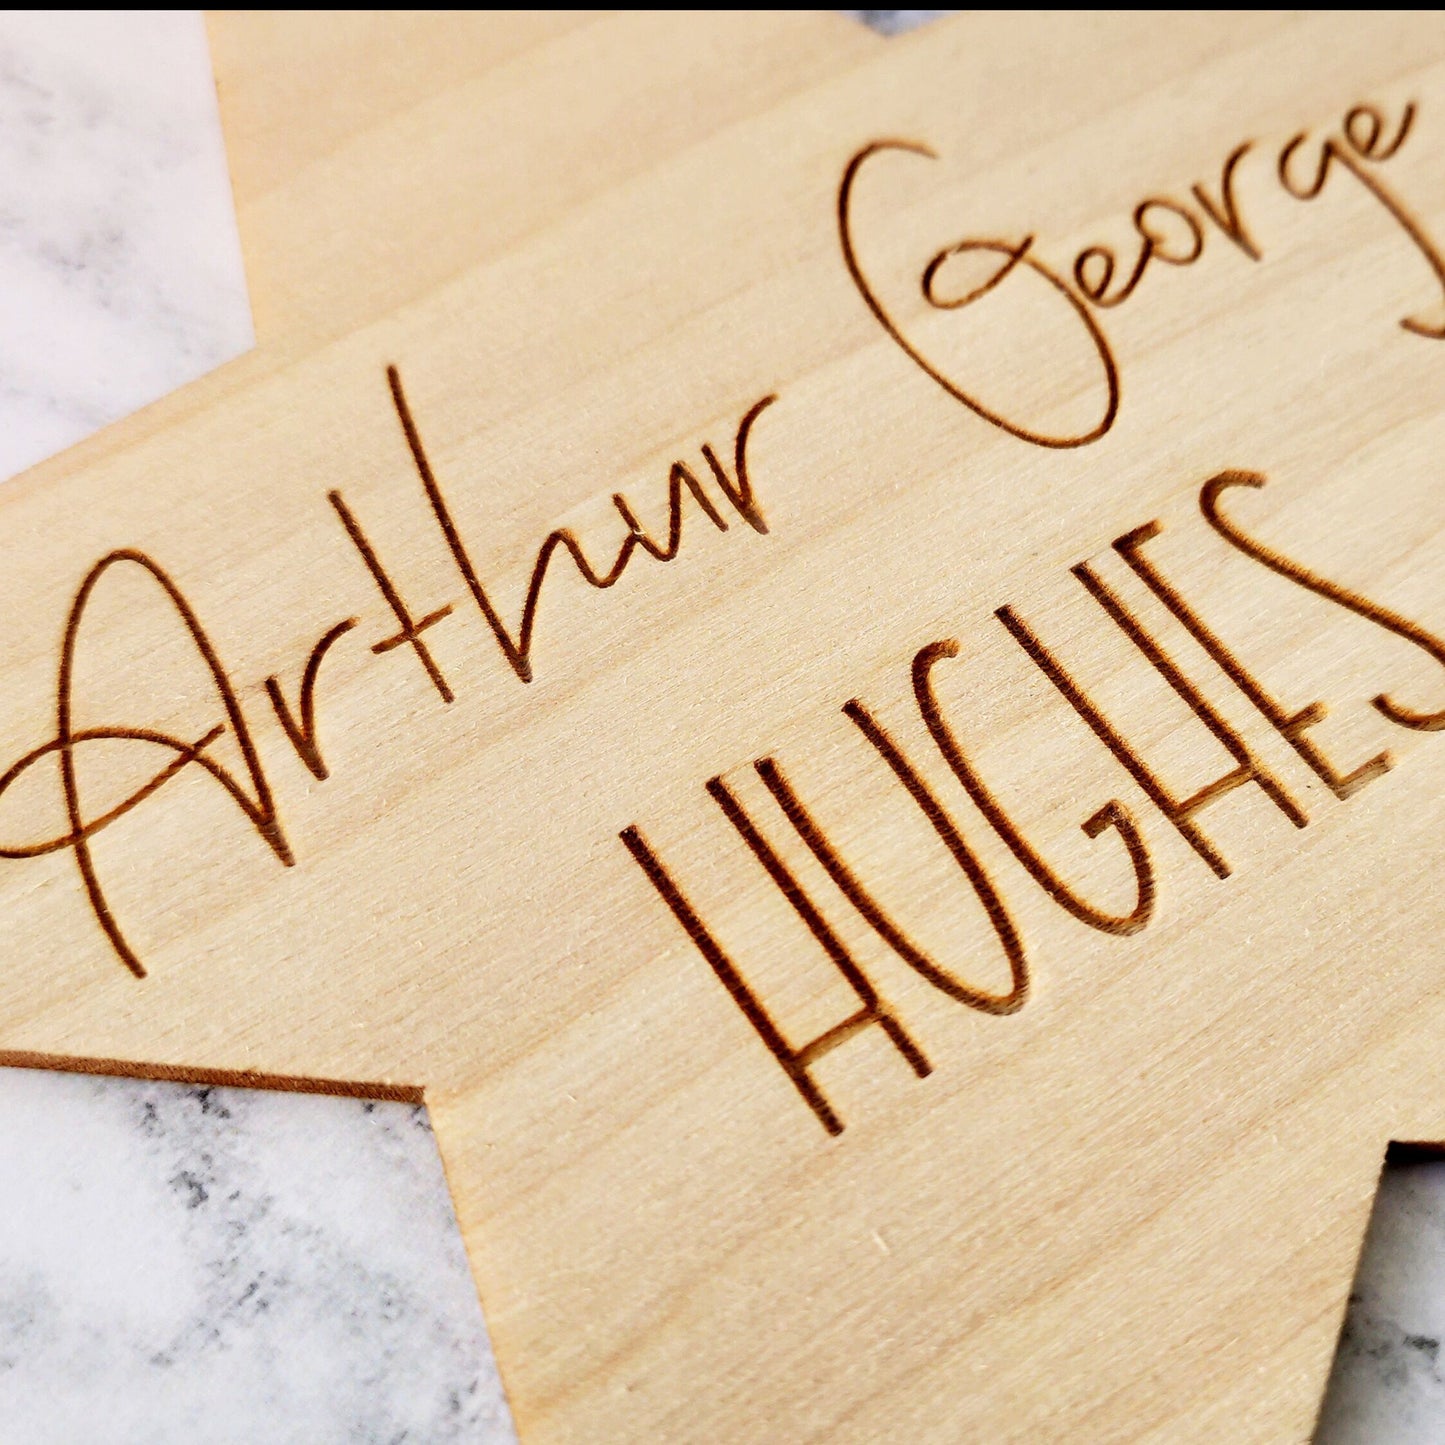 Arthur George
HUGHES